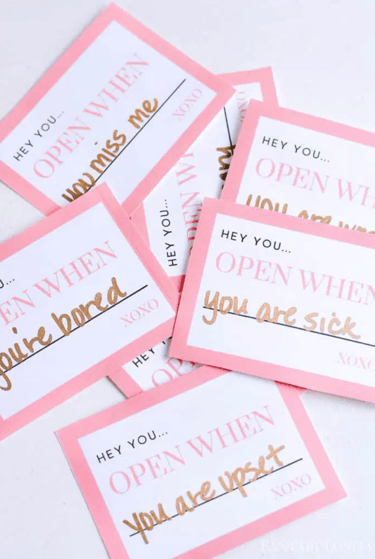 HEY YOU...
OPEN WHEN
you miss me
XOXO
HEY YOU...
HEY YOU...
OPEN WH
you are
HEY YOU...
OPEN WHEN
you are sick
XOXO
OPEN WHEN
you're bored
XOXO
HEY
XOXO
HEY YOU...
OPEN WHEN
you are upset
XOXO